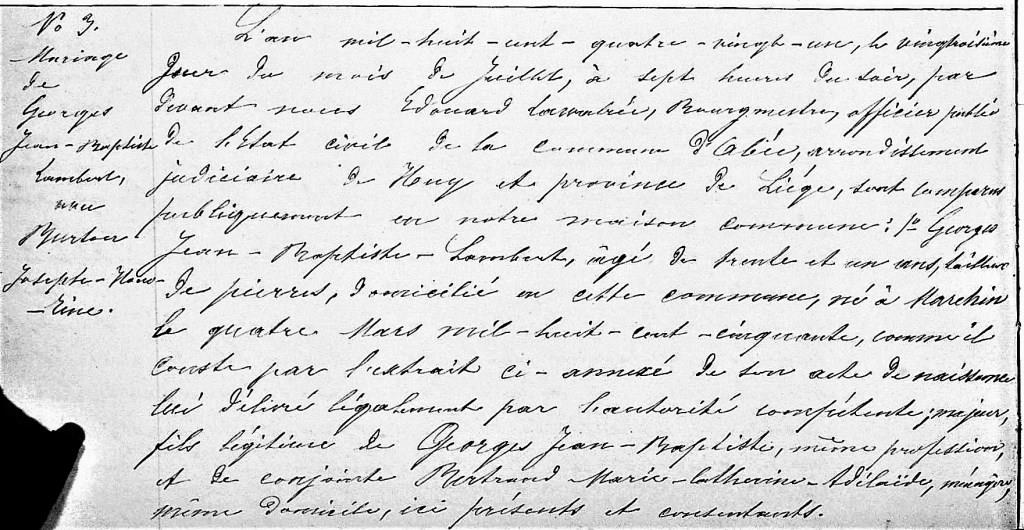 No 3.
Mariage
de
Georges
Jean-Baptiste
Lambert,
avec
Burton
Josephe-Hono-
-rine.
L'an mil-huit-cent-quatre-vingt-un, le vingtroisième
jour du mois de Juillet, à sept heures du soir, par
devant nous Edouard Lavalrée, Bourgmestre, officier public
de l'Etat civil de la commune d'Abée, arrondissement
judiciaire de Huy et province de Liége, sont comparus
publiquement en notre maison commune: 1o Georges
Jean-Baptiste-Lambert, âgé de trente et un ans, tailleur
de pierres, domicilié en cette commune, né à Marchin
le quatre Mars mil-huit-cent-cinquante, comme il
conste par l'extrait ci-annexé de son acte de naissance
lui délivré légalement par l'autorité compétente; majeur,
fils légitime de Georges Jean-Baptiste, même profession,
et de conjointe Bertrand Marie-Catherine-Adélaïde, ménagère,
même domicile, ici présents et consentants.